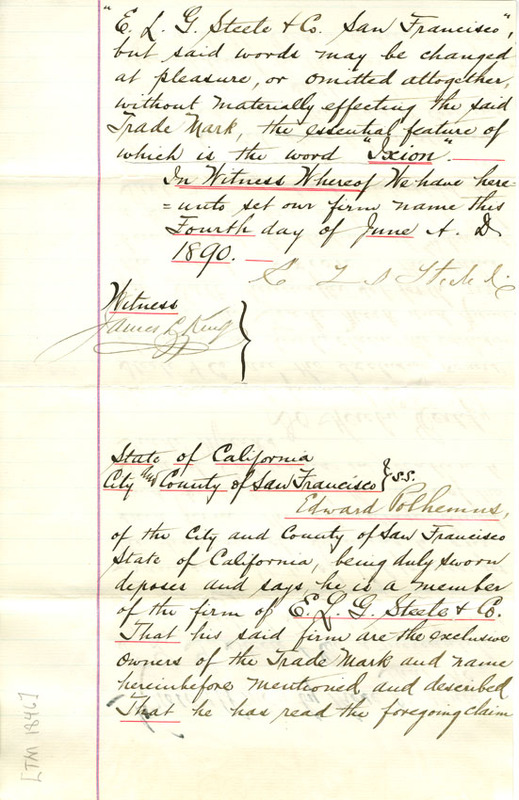 "E. L. G. Steele & Co. San Francisco",
but said words may be changed
at pleasure, or omitted altogether,
without materially effecting the said
Trade Mark, the essential feature of
which is the word "Ixion".
In Witness Whereof We have here=
=unto set our firm name this
Fourth day of June A. D.
1890.
Steele
Witness
James L. King
State of California
City and County of San Francisco } ss.
Edward Polhemus,
of the City and County of San Francisco
State of California, being duly sworn
deposes and says he is a member
of the firm of E. L. G. Steele & Co.
That his said firm are the exclusive
owners of the Trade Mark and name
hereinbefore mentioned and described
That he has read the foregoing claim
[TM 1846]